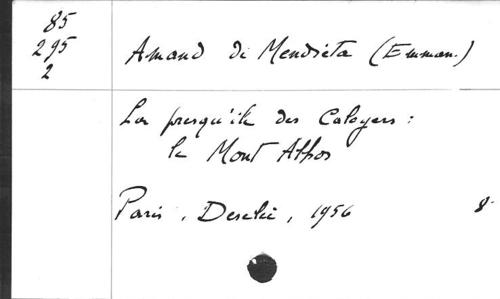 85
295
2
Amand di Mendieta (Emman.)
La presqu'île des Caloyers :
le Mont Athos
Paris, Desclée, 1956 8